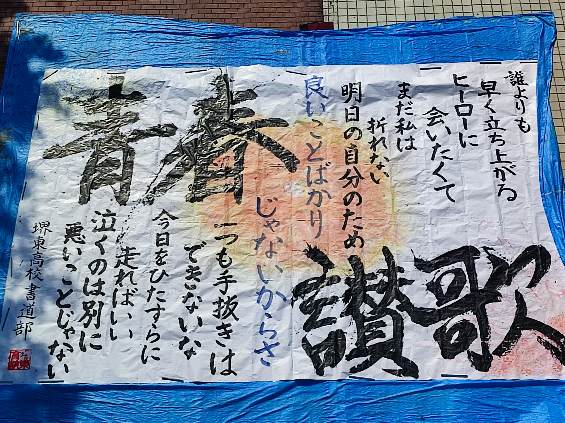 誰よりも
早く立ち上がる
ヒーローに
会いたくて
まだ私は
折れない
明日の自分のため
良いことばかり
じゃないからさ
讃歌
青春
一つも手抜きは
できないな
今日をひたすらに
走ればいい
泣くのは別に
悪いことじゃない
堺東高校書道部